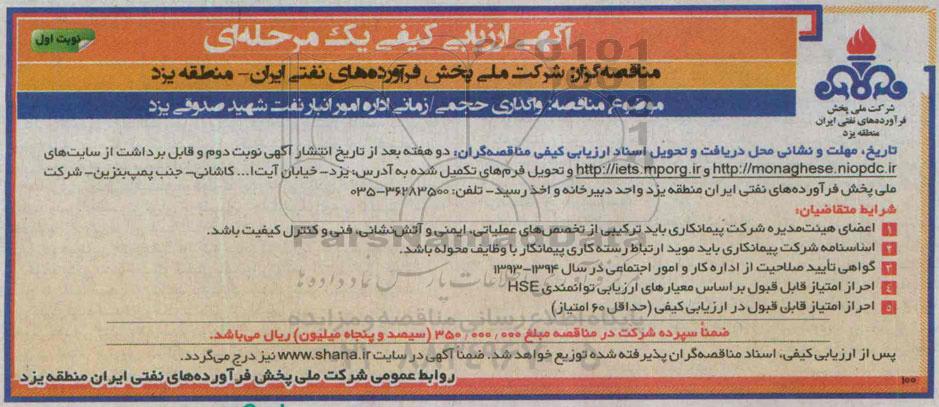 آگهی ارزیابی کیفی یک مرحله‌ای
نوبت اول
مناقصه‌گران شرکت ملی پخش فرآورده‌های نفتی ایران- منطقه یزد
موضوع مناقصه: واگذاری حجمی/زمانی اداره امور انبار نفت شهید صدوقی یزد
شرکت ملی پخش
فرآورده‌های نفتی ایران
منطقه یزد
تاریخ، مهلت و نشانی محل دریافت و تحویل اسناد ارزیابی کیفی مناقصه‌گران: دو هفته بعد از تاریخ انتشار آگهی نوبت دوم و قابل برداشت از سایت‌های
http://monaghese.niopdc.ir و http://iets.mporg.ir و تحویل فرم‌های تکمیل شده به آدرس: یزد- خیابان آیت‌ا... کاشانی- جنب پمپ‌بنزین- شرکت
ملی پخش فرآورده‌های نفتی ایران منطقه یزد واحد دبیرخانه و اخذ رسید- تلفن: ۳۶۲۸۳۵۰۰-۰۳۵
شرایط متقاضیان:
۱ اعضای هیئت‌مدیره شرکت پیمانکاری باید ترکیبی از تخصص‌های عملیاتی، ایمنی و آتش‌نشانی، فنی و کنترل کیفیت باشد.
۲ اساسنامه شرکت پیمانکاری باید موید ارتباط رسته کاری پیمانکار با وظایف محوله باشد.
۳ گواهی تأیید صلاحیت از اداره کار و امور اجتماعی در سال ۱۳۹۴-۱۳۹۳
۴ احراز امتیاز قابل قبول بر اساس معیارهای ارزیابی توانمندی HSE
۵ احراز امتیاز قابل قبول در ارزیابی کیفی (حداقل ۶۰ امتیاز)
ضمناً سپرده شرکت در مناقصه مبلغ ۳۵۰/۰۰۰/۰۰۰ (سیصد و پنجاه میلیون) ریال می‌باشد.
پس از ارزیابی کیفی، اسناد مناقصه‌گران پذیرفته شده توزیع خواهد شد. ضمناً آگهی در سایت www.shana.ir نیز درج می‌گردد.
روابط عمومی شرکت ملی پخش فرآورده‌های نفتی ایران منطقه یزد
۱۰۰